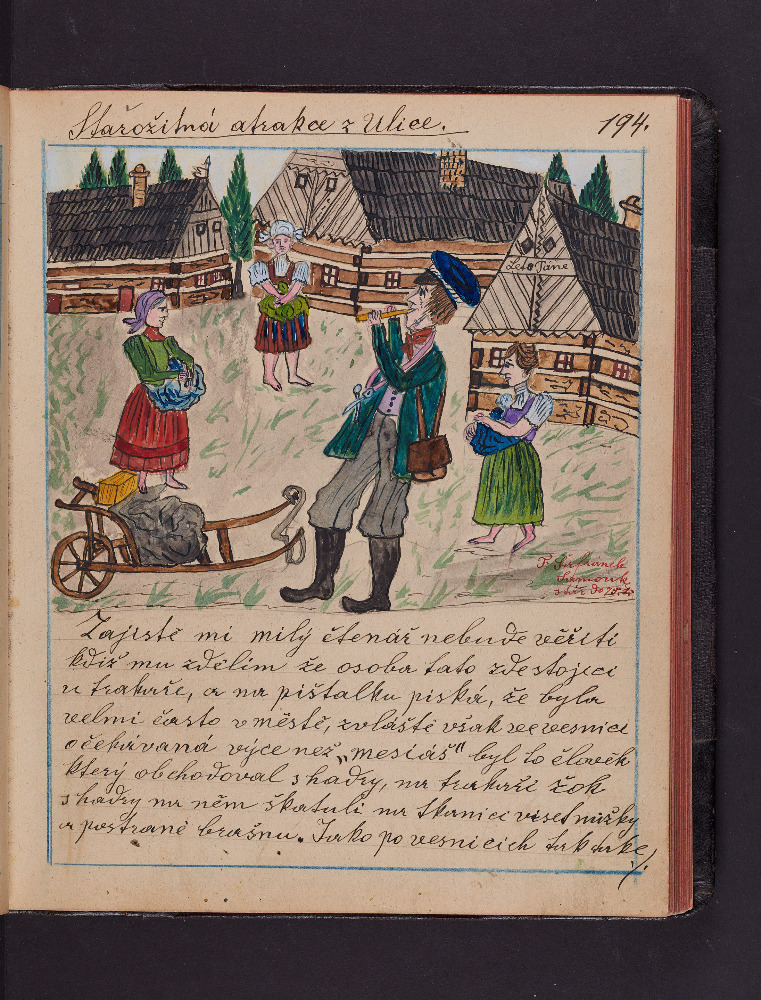 Stařožitná atrakce z Ulice.
194.
Léto Páně
P. Šafránek
Lumouk
Zajistě mi milý čtenář nebude věřiti
když mu zdělím že osoba tato zde stojící
u trakaře, a na píštalku píská, že byla
velmi často v městě, zvláště však ve vesnici
očekávaná výce než „mesiáš" byl to člověk
který obchodoval s hadry, na trakaři žok
s hadry na něm škatuli na tkanici viset nužky
a postraně brašnu. Jako po vesnicích tak také
./.